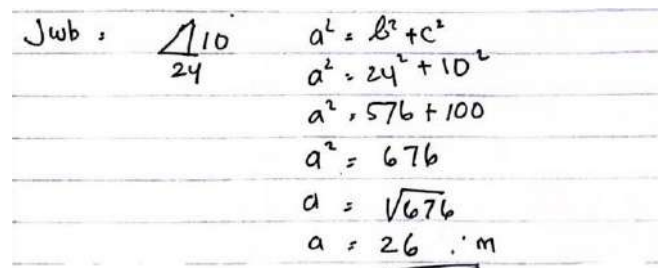 Jwb : 10 a² = b² + c²
24 a² = 24² + 10²
a² = 576 + 100
a² = 676
a = √676
a = 26 m